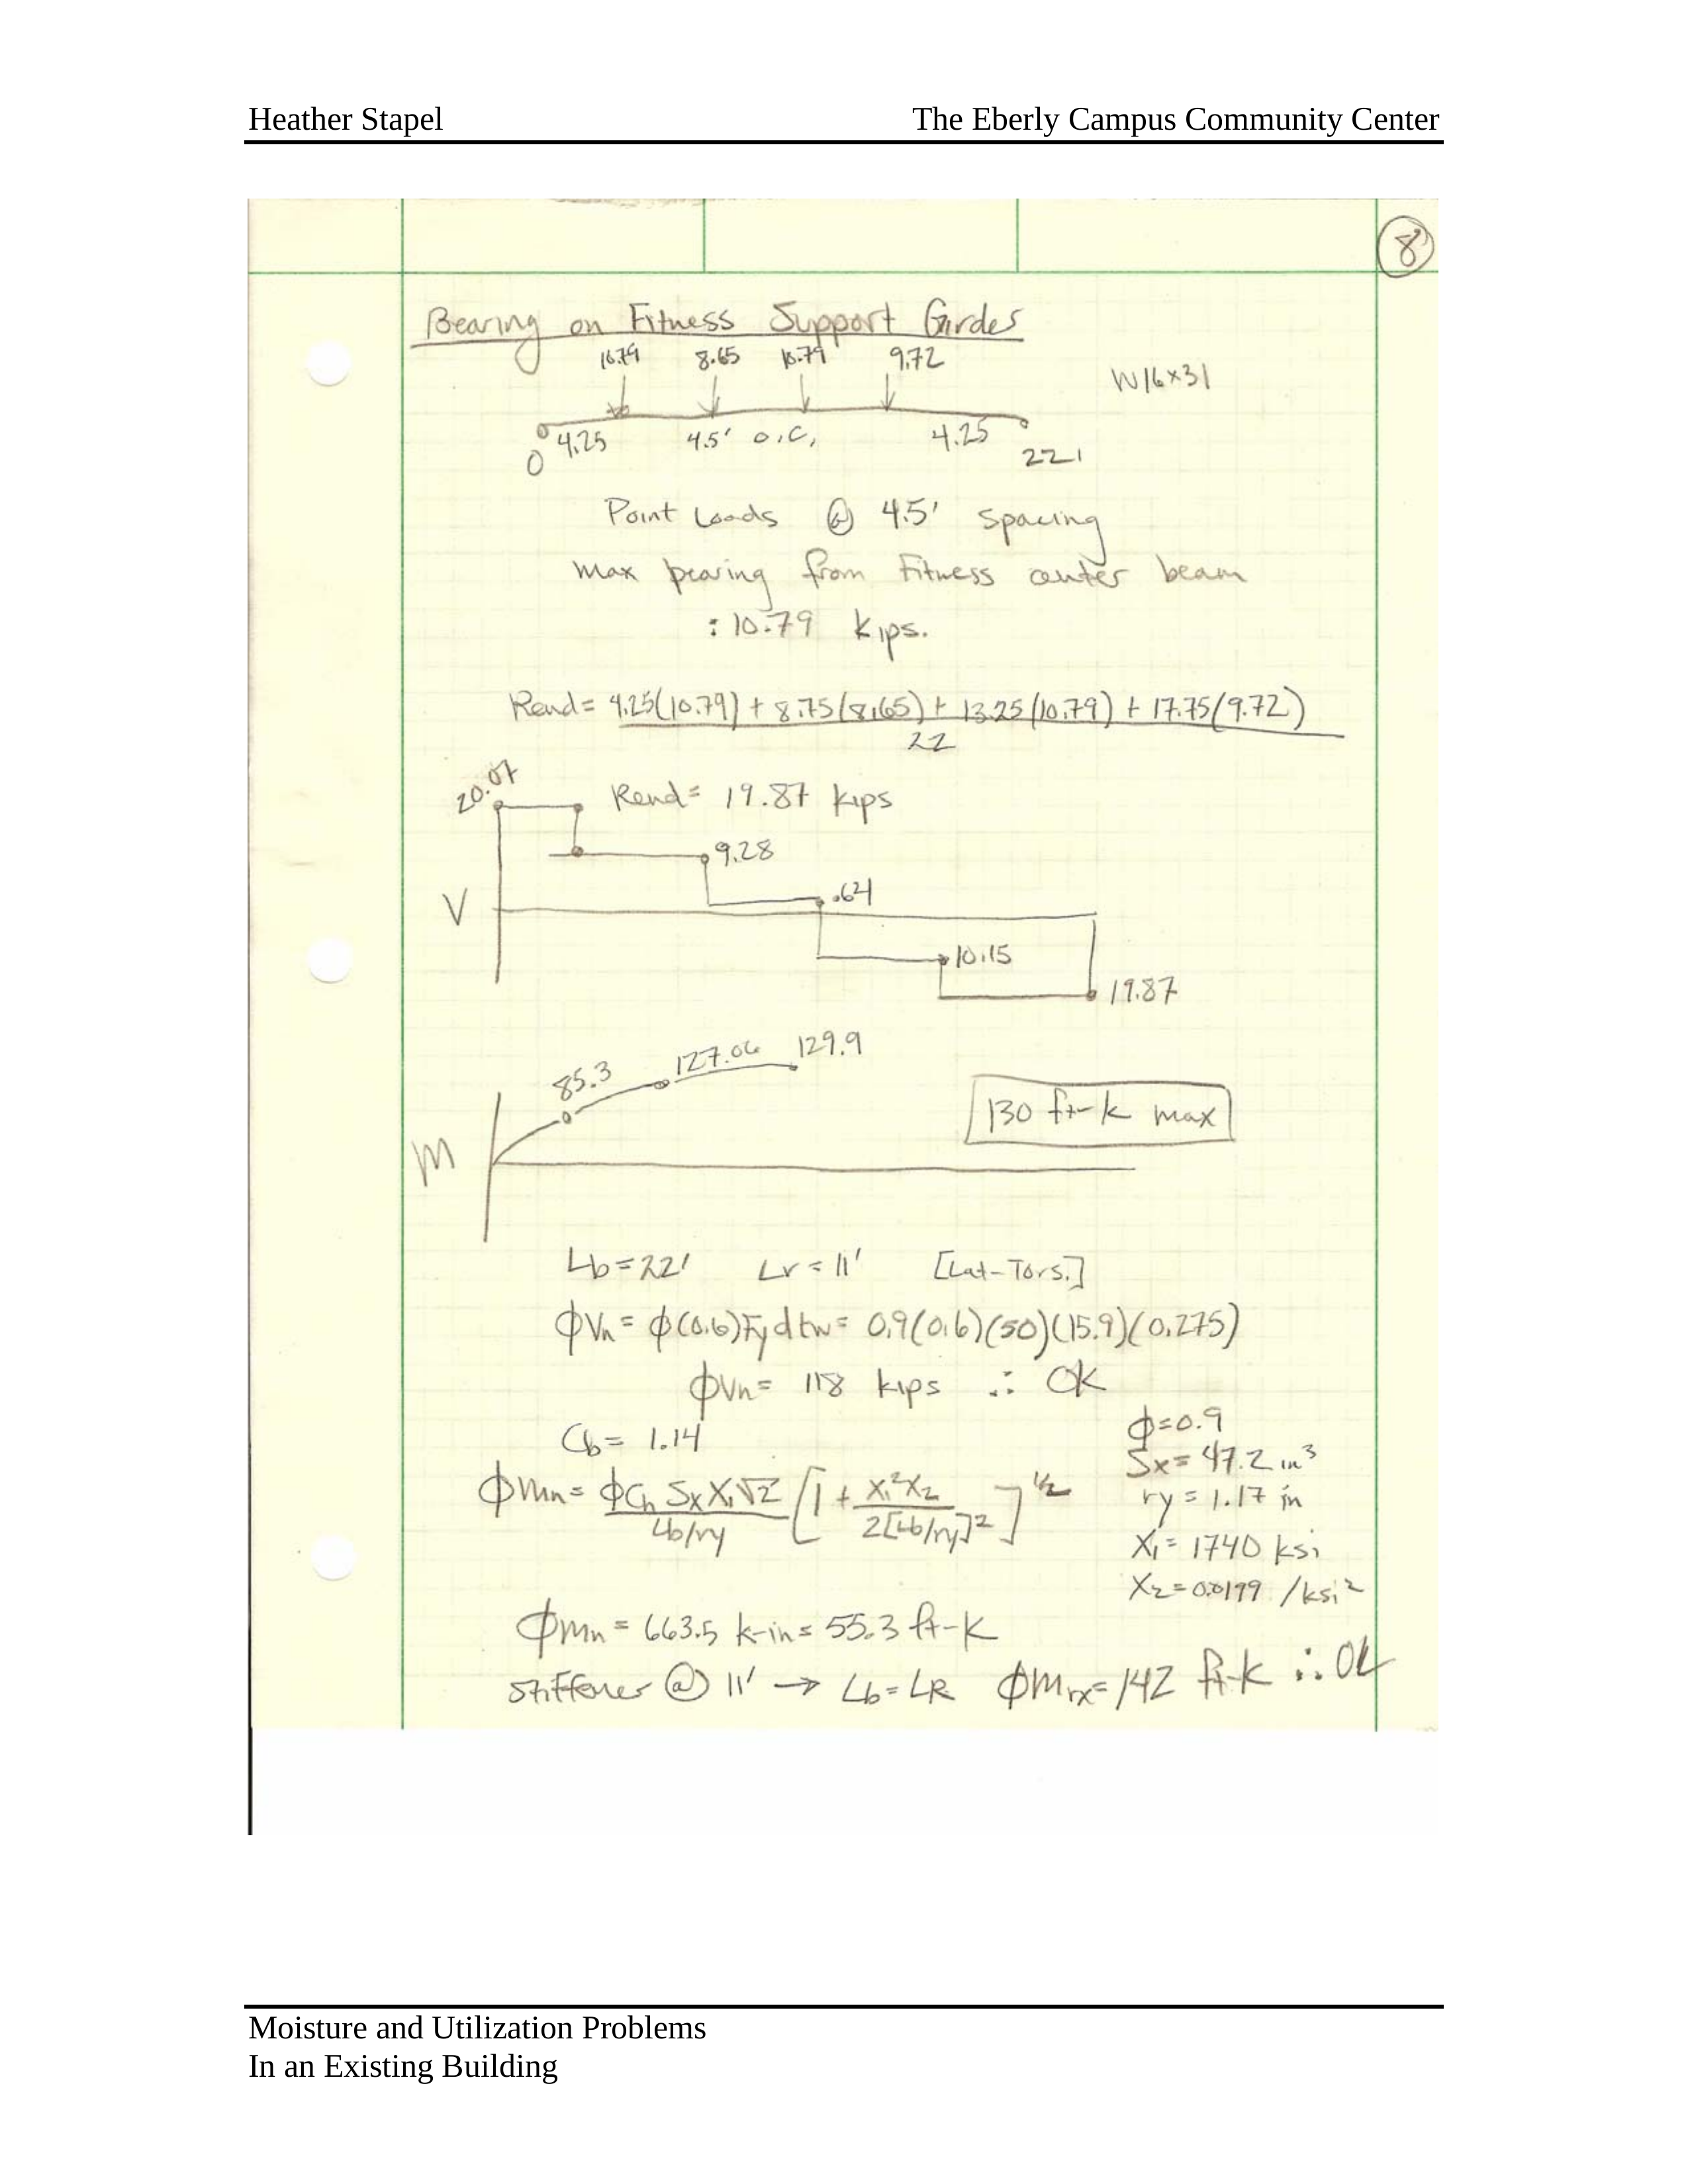 Heather Stapel The Eberly Campus Community Center
8
Bearing on Fitness Support Girder
10.79 8.65 10.79 9.72
W16×31
4.25 4.5' o.c. 4.25
0 22'
Point Loads @ 4.5' spacing
max bearing from Fitness center beam
: 10.79 kips.
Rend = 4.25(10.79) + 8.75(8.65) + 13.25(10.79) + 17.75(9.72)
22
20.07
Rend = 19.87 kips
9.28
V .64
10.15
19.87
85.3 127.06 129.9
130 ft-k max
M
Lb = 22' Lr = 11' [Lat-Tors.]
ϕVn = ϕ(0.6)Fy d tw = 0.9(0.6)(50)(15.9)(0.275)
ϕVn = 118 kips ∴ OK
Cb = 1.14
ϕ = 0.9
Sx = 47.2 in³
ϕMn = ϕCb Sx X₁√2 / Lb/ry [1 + X₁²X₂ / 2[Lb/ry]²]^1/2
ry = 1.17 in
X₁ = 1740 ksi
X₂ = 0.0199 /ksi²
ϕMn = 663.5 k-in = 55.3 ft-k
Stiffener @ 11' → Lb = LR ϕMrx = 142 ft-k ∴ OK
Moisture and Utilization Problems
In an Existing Building